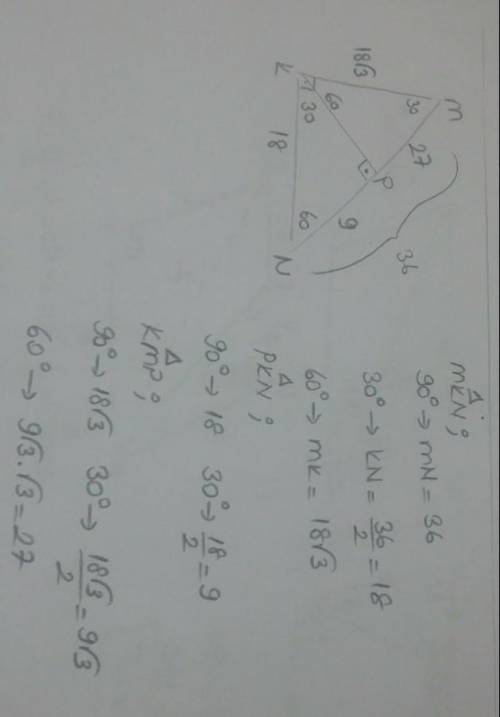 M
18√3
30
27
36
P
60
K
30
9
18
60
N
Δ
MKN;
90° → MN = 36
30° → KN = 36/2 = 18
60° → MK = 18√3
Δ
PKN;
90° → 18 30° → 18/2 = 9
Δ
KMP;
90° → 18√3 30° → 18√3/2 = 9√3
60° → 9√3.√3 = 27